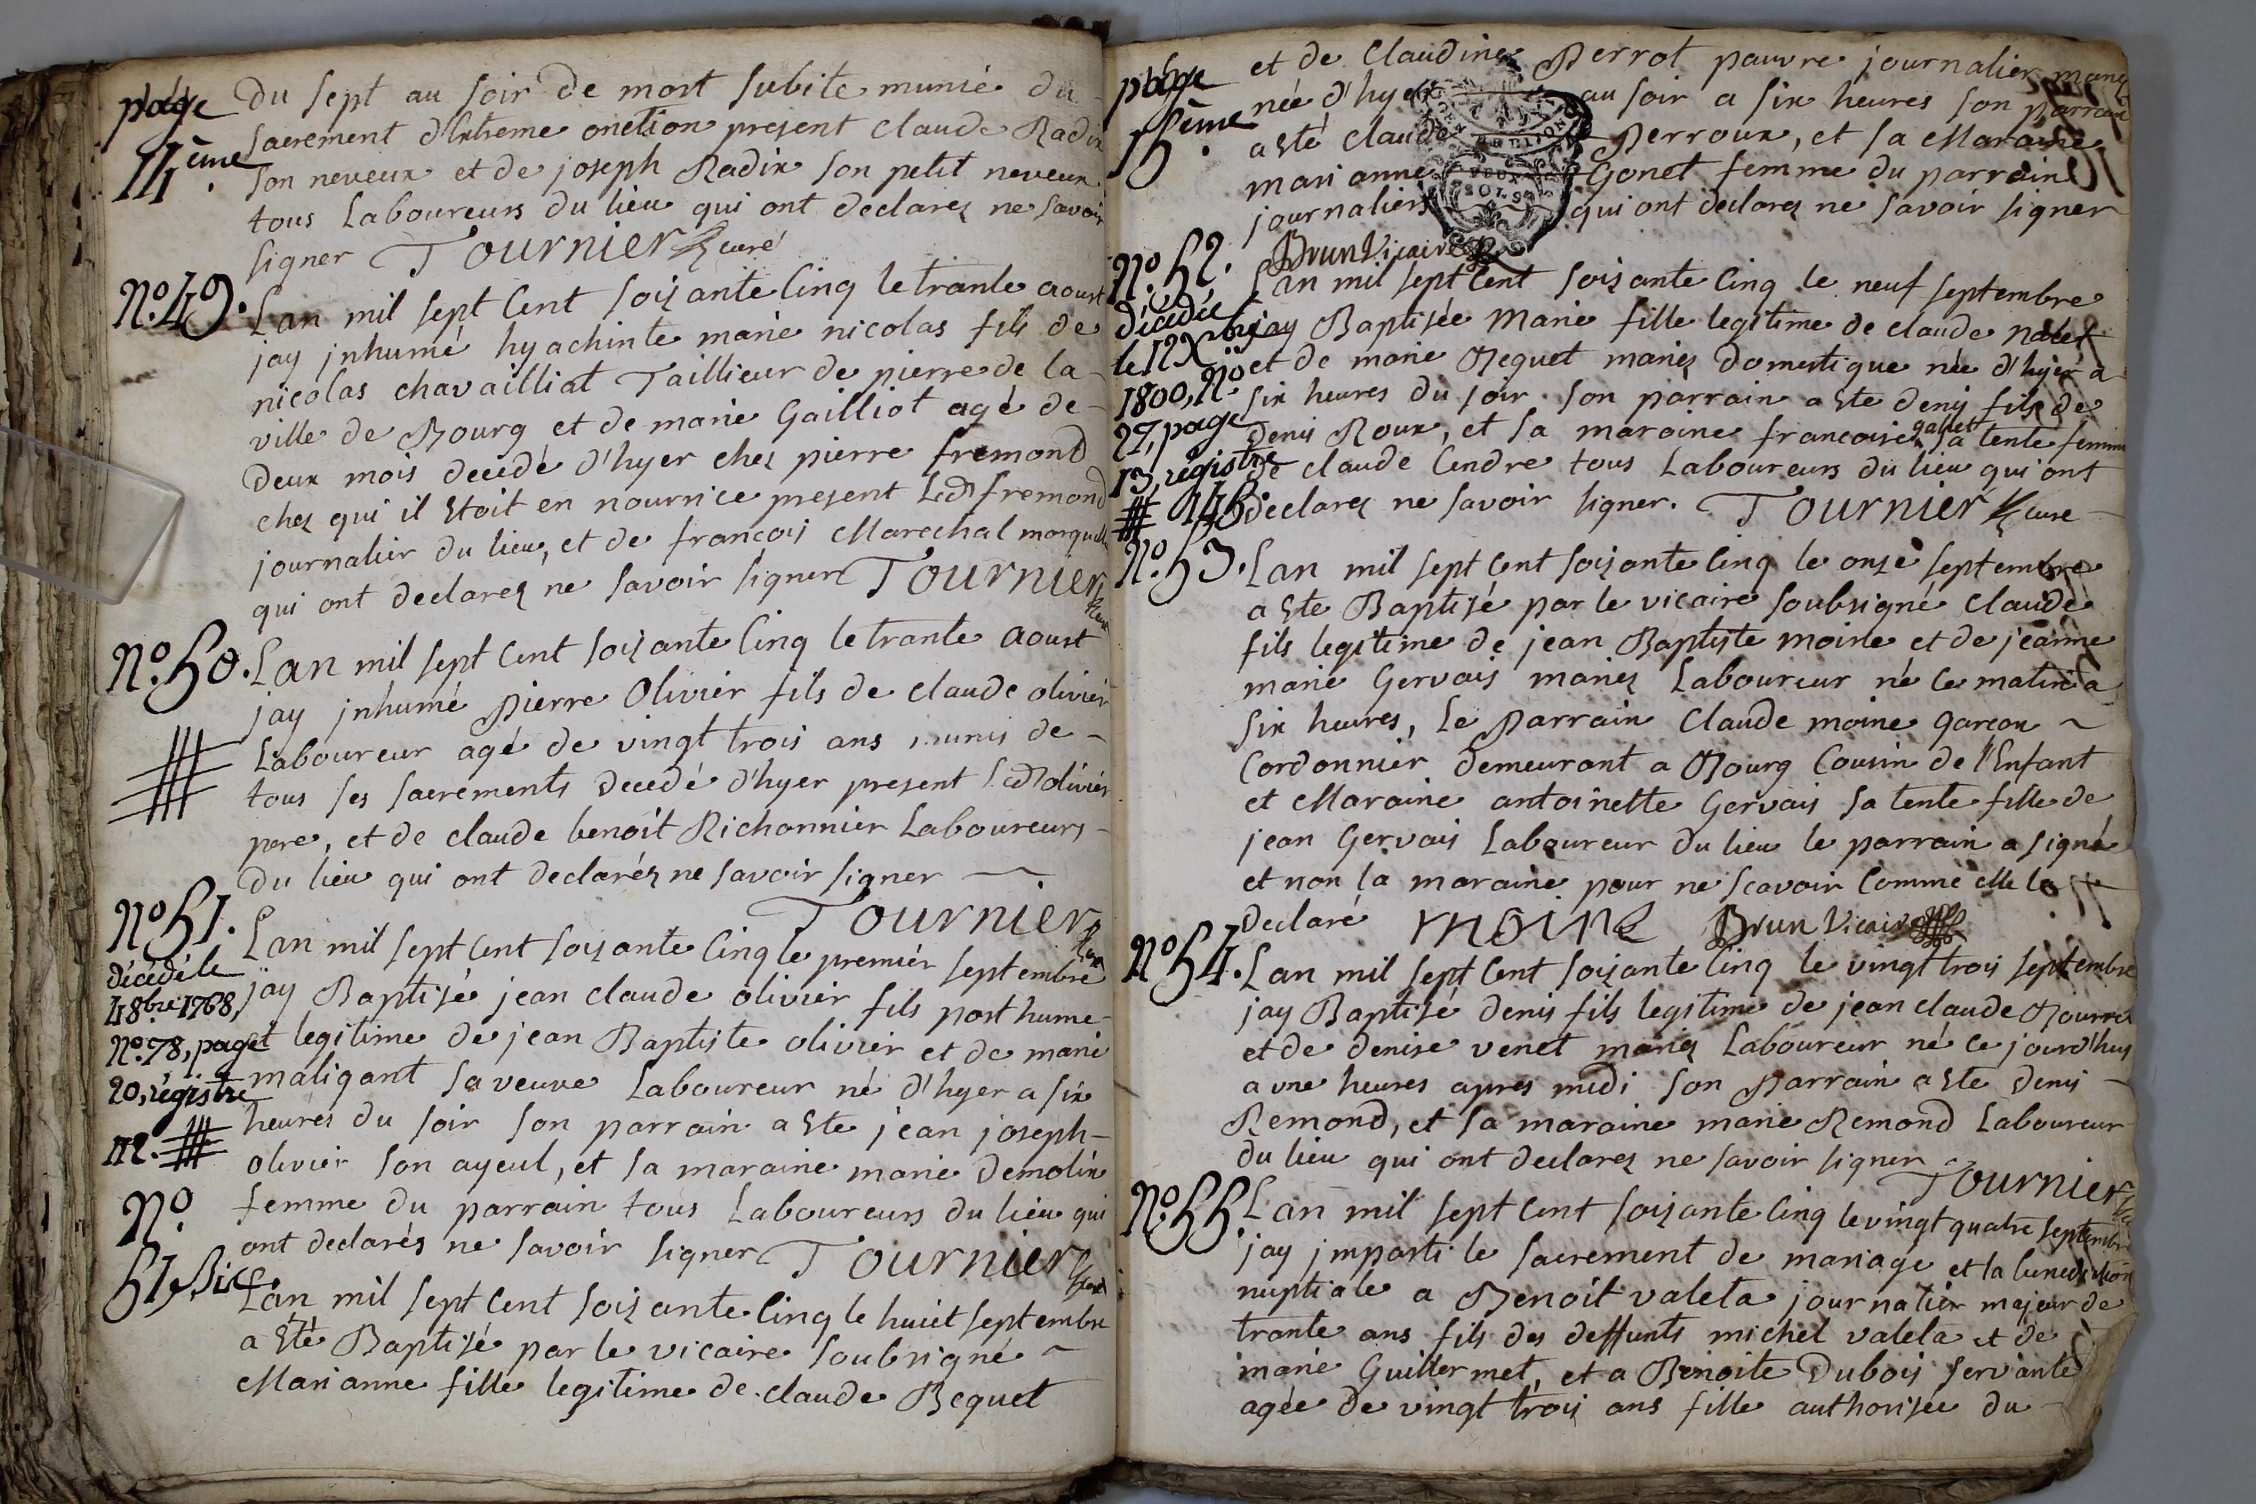 page
14ème.
du sept au soir de mort subite munié du
sacrement d'Extreme onction present claude Radix
son neveux et de joseph Radix son petit neveux
tous Laboureurs du lieu qui ont declarez ne savoir
signer Tournier curé
No. 49.
Lan mil sept Cent soizante Cinq le trante aoust
jay jnhumé hyachinte marie nicolas fils de
nicolas chavailliat Taillieur de pierre de la
ville de Bourg et de marie Gailliot agé de
deux mois decedé d'hyer chez pierre fremond
chez qui il Etoit en nourrice present led fremond
journalier du lieu, et de francois Marechal
qui ont declarez ne savoir signer Tournier curé
No. 50.
Lan mil sept Cent soizante Cinq le trante aoust
jay jnhumé pierre Olivier fils de claude olivier
Laboureur agé de vingt trois ans munis de
tous ses sacrements decedé d'hyer present led olivier
pere, et de claude benoit Richonnier Laboureurs
du lieu qui ont declaréz ne savoir signer
Tournier curé
No 51.
décédé le
4 8bre 1768,
No. 78, page
20, régistre
112.
Lan mil sept Cent soizante Cinq le premier septembre
jay Baptisé jean claude olivier fils posthume
et legitime de jean Baptiste olivier et de marie
maligant sa veuve Laboureur né d'hyer a six
heures du soir son parrain a Ete jean joseph
olivier son ayeul, et sa maraine marie demolin
femme du parrain tous Laboureurs du lieu qui
ont declarés ne savoir signer Tournier curé
No.
51 Bic.
Lan mil sept Cent soizante Cinq le huict septembre
a Eté Baptisé par le vicaire soubsigné
Marianne fille legitime de claude Bequet
page
15ème.
et de Claudine Perrot pauvre journalier
née d'hyer au soir a six heures son parrain
a Eté claude Perroux, et sa Maraine
mari anne Gonet femme du parrain
journaliers qui ont declarez ne savoir signer
Brun Vicaire
DEUX
SOLS
No. 52.
décédée
le 12 Xbre
1800, No
27, page
13, régistre
145
Lan mil sept Cent soizante Cinq le neuf septembre
jay Baptisée Marie fille legitime de claude
et de marie Bequet mariez Domestique née d'hyer a
six heures du soir. son parrain a Ete denis fils de
denis Roux, et sa maraine francoise galet sa tente femme
de claude Cendre tous Laboureurs du lieu qui ont
declarez ne savoir signer. Tournier curé
No. 53.
Lan mil sept Cent soizante Cinq le onze septembre
a Ete Baptisé par le vicaire soubsigné Claude
fils legitime de jean Baptiste moine et de jeanne
marie Gervais mariez Laboureur né ce matin a
six heures, Le Parrain Claude moine garcon
Cordonnier demeurant a Bourg Cousin de l'Enfant
et Maraine antoinette Gervais sa tente fille de
jean Gervais Laboureur du lieu le parrain a signé
et non la maraine pour ne scavoir Comme elle la
declaré moine Brun Vicaire
No 54.
Lan mil sept Cent soizante Cinq le vingt trois septembre
jay Baptisé denis fils legitime de jean claude
et de denise venet mariez Laboureur né ce jourd'huy
a une heures apres midi son Parrain a Ete denis
Remond, et sa maraine marie Remond Laboureur
du lieu qui ont declarez ne savoir signer
Tournier
No. 55.
Lan mil sept Cent soizante Cinq le vingt quatre septembre
jay jmparti le sacrement de mariage et la benediction
nuptiale a Benoit valeta journalier majeur de
trante ans fils des deffunts michel valeta et de
marie Guillermet, et a Benoite Dubois servante
agée de vingt trois ans fille authorisée du